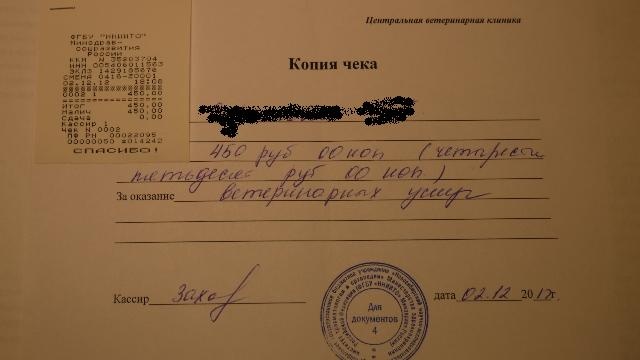 ФГБУ "ННИИТО"
Минздрав-
соцразвития
России
ККМ N 35203704
ИНН 005406011563
ЭКЛЗ 1429185676
СМЕНА 0416-Z0001
02.12.12 18:08
0002 1 450,00
ИТОГ 450,00
Налич 450,00
Сдача 0,00
Кассир 1
Чек N 0002
ПФ РН 00022095
00000050 #014242
СПАСИБО!
Центральная ветеринарная клиника
Копия чека
450 руб 00 коп (четыреста
пятьдесят руб 00 коп.)
За оказание ветеринарных услуг
Кассир
дата 02.12 2012г.
Для
документов
4